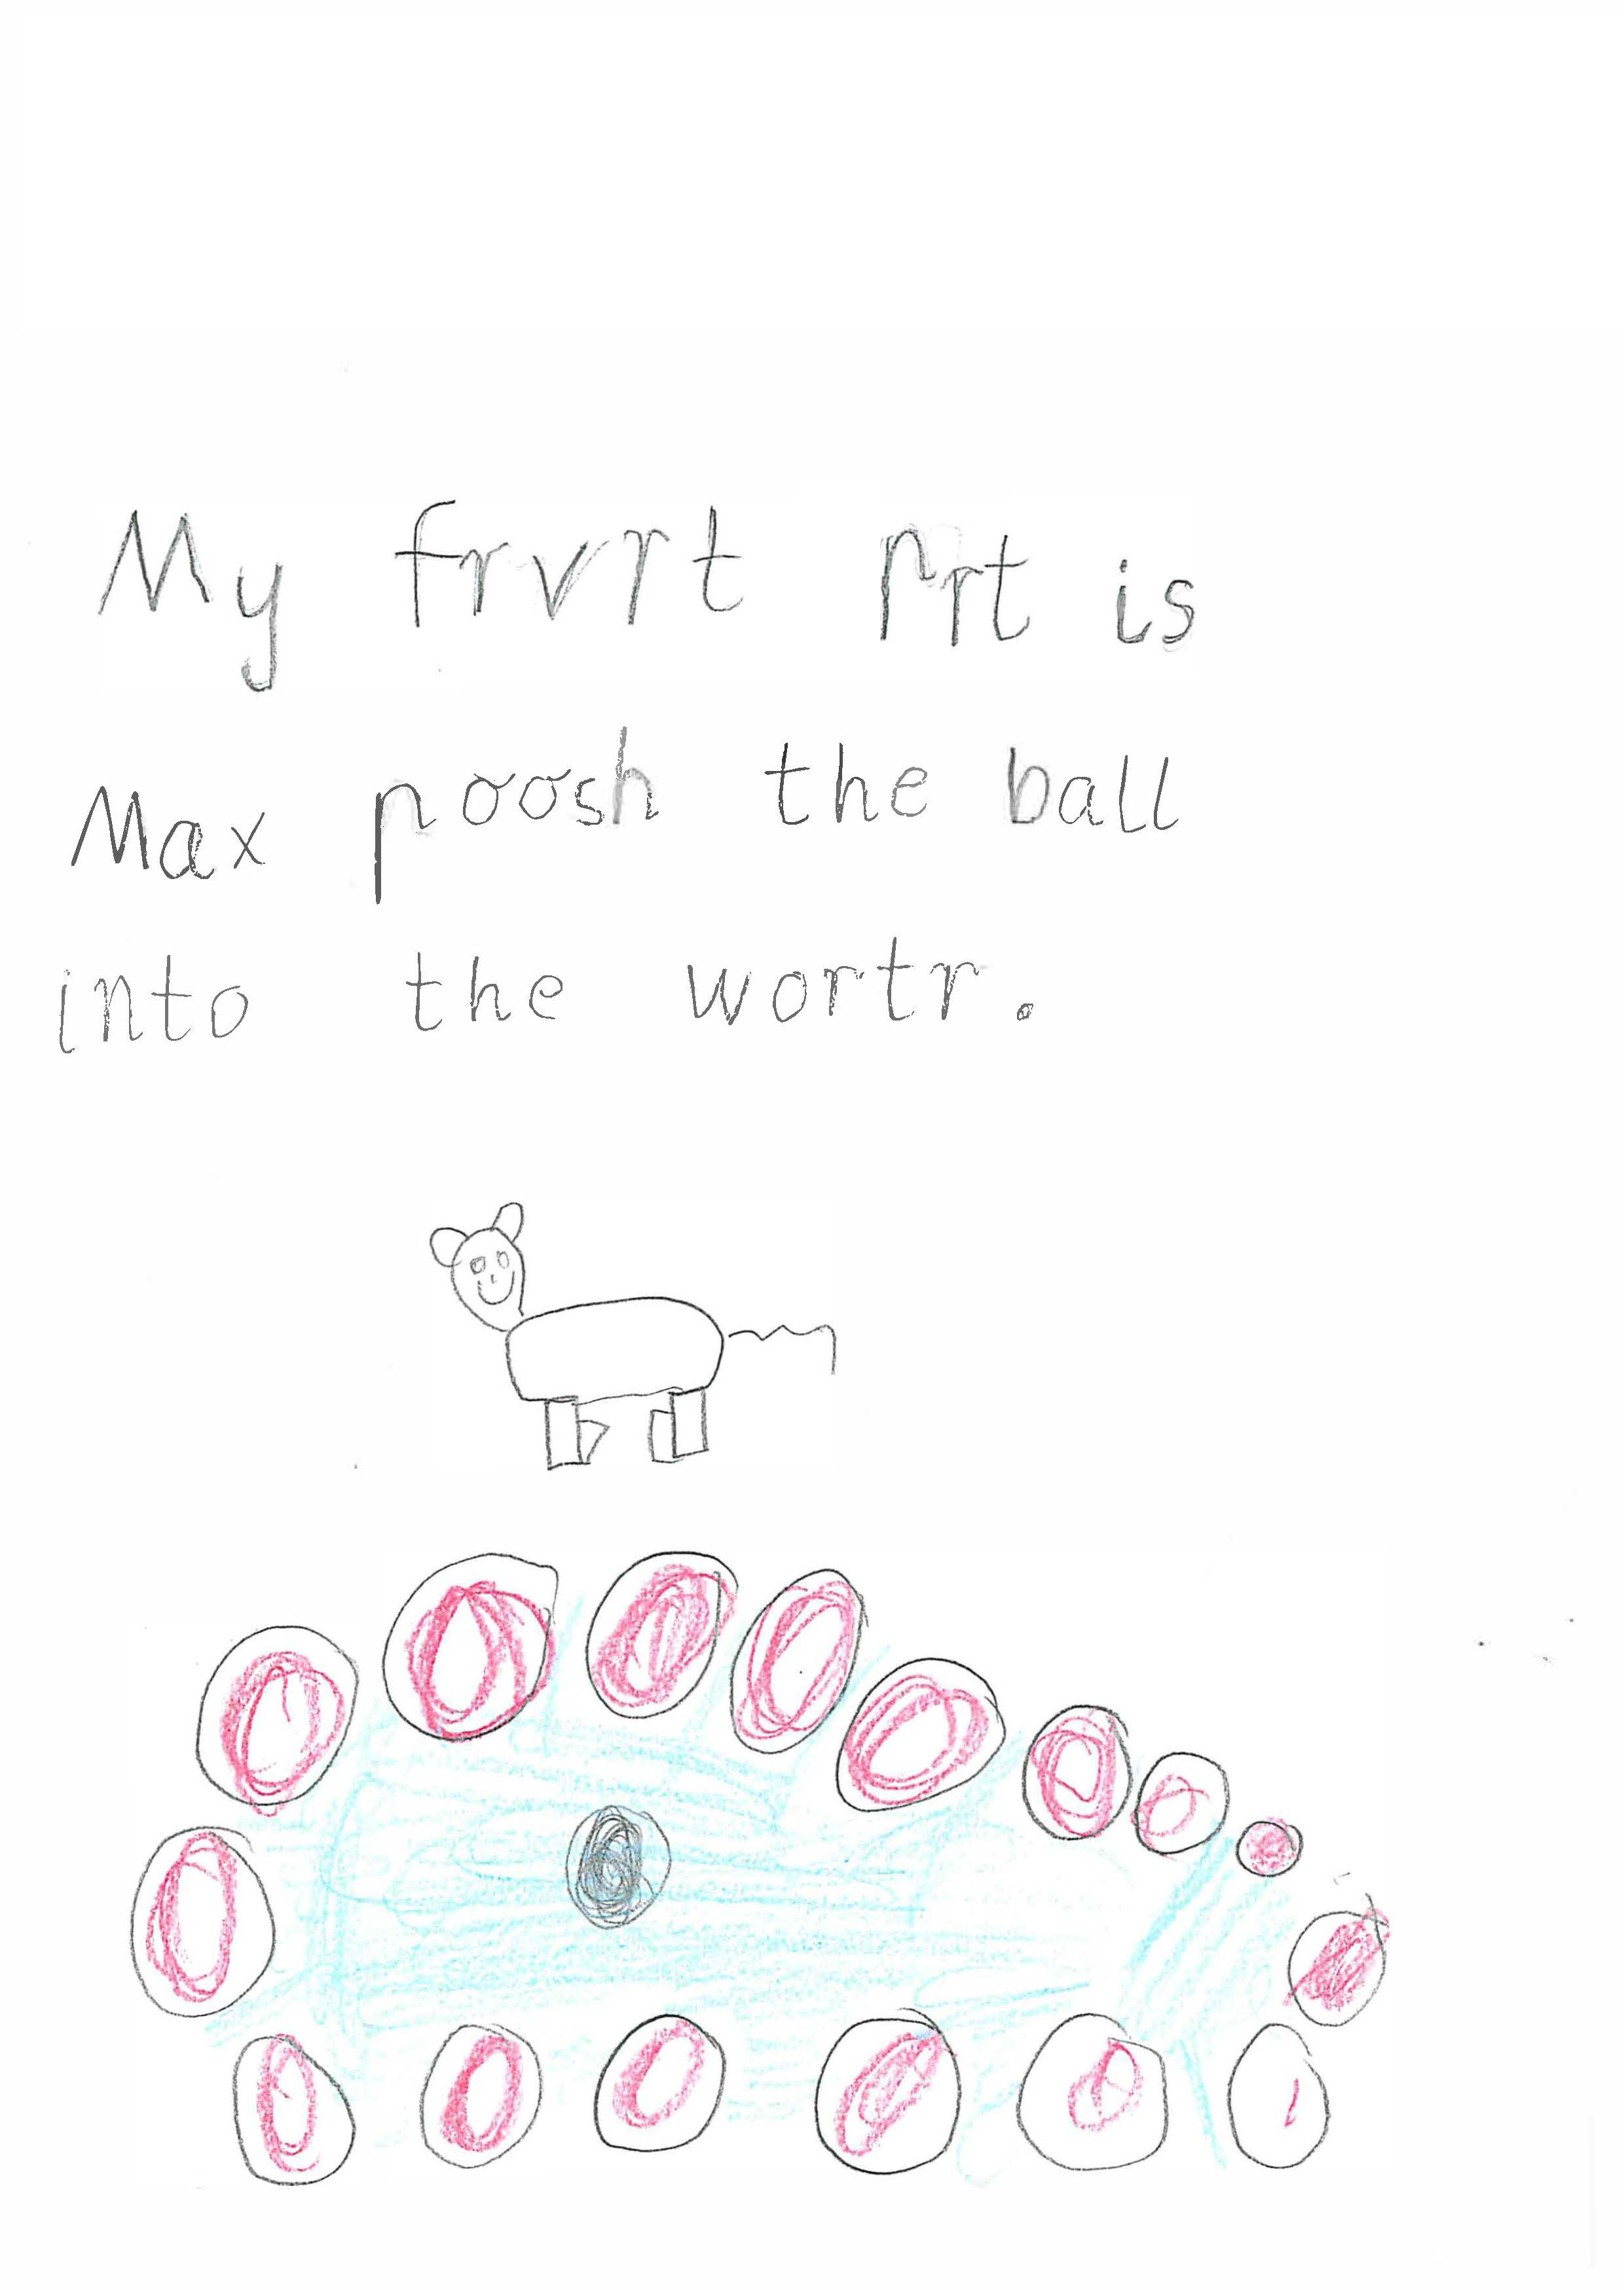 My frvrt prt is
Max poosh the ball
into the wortr.